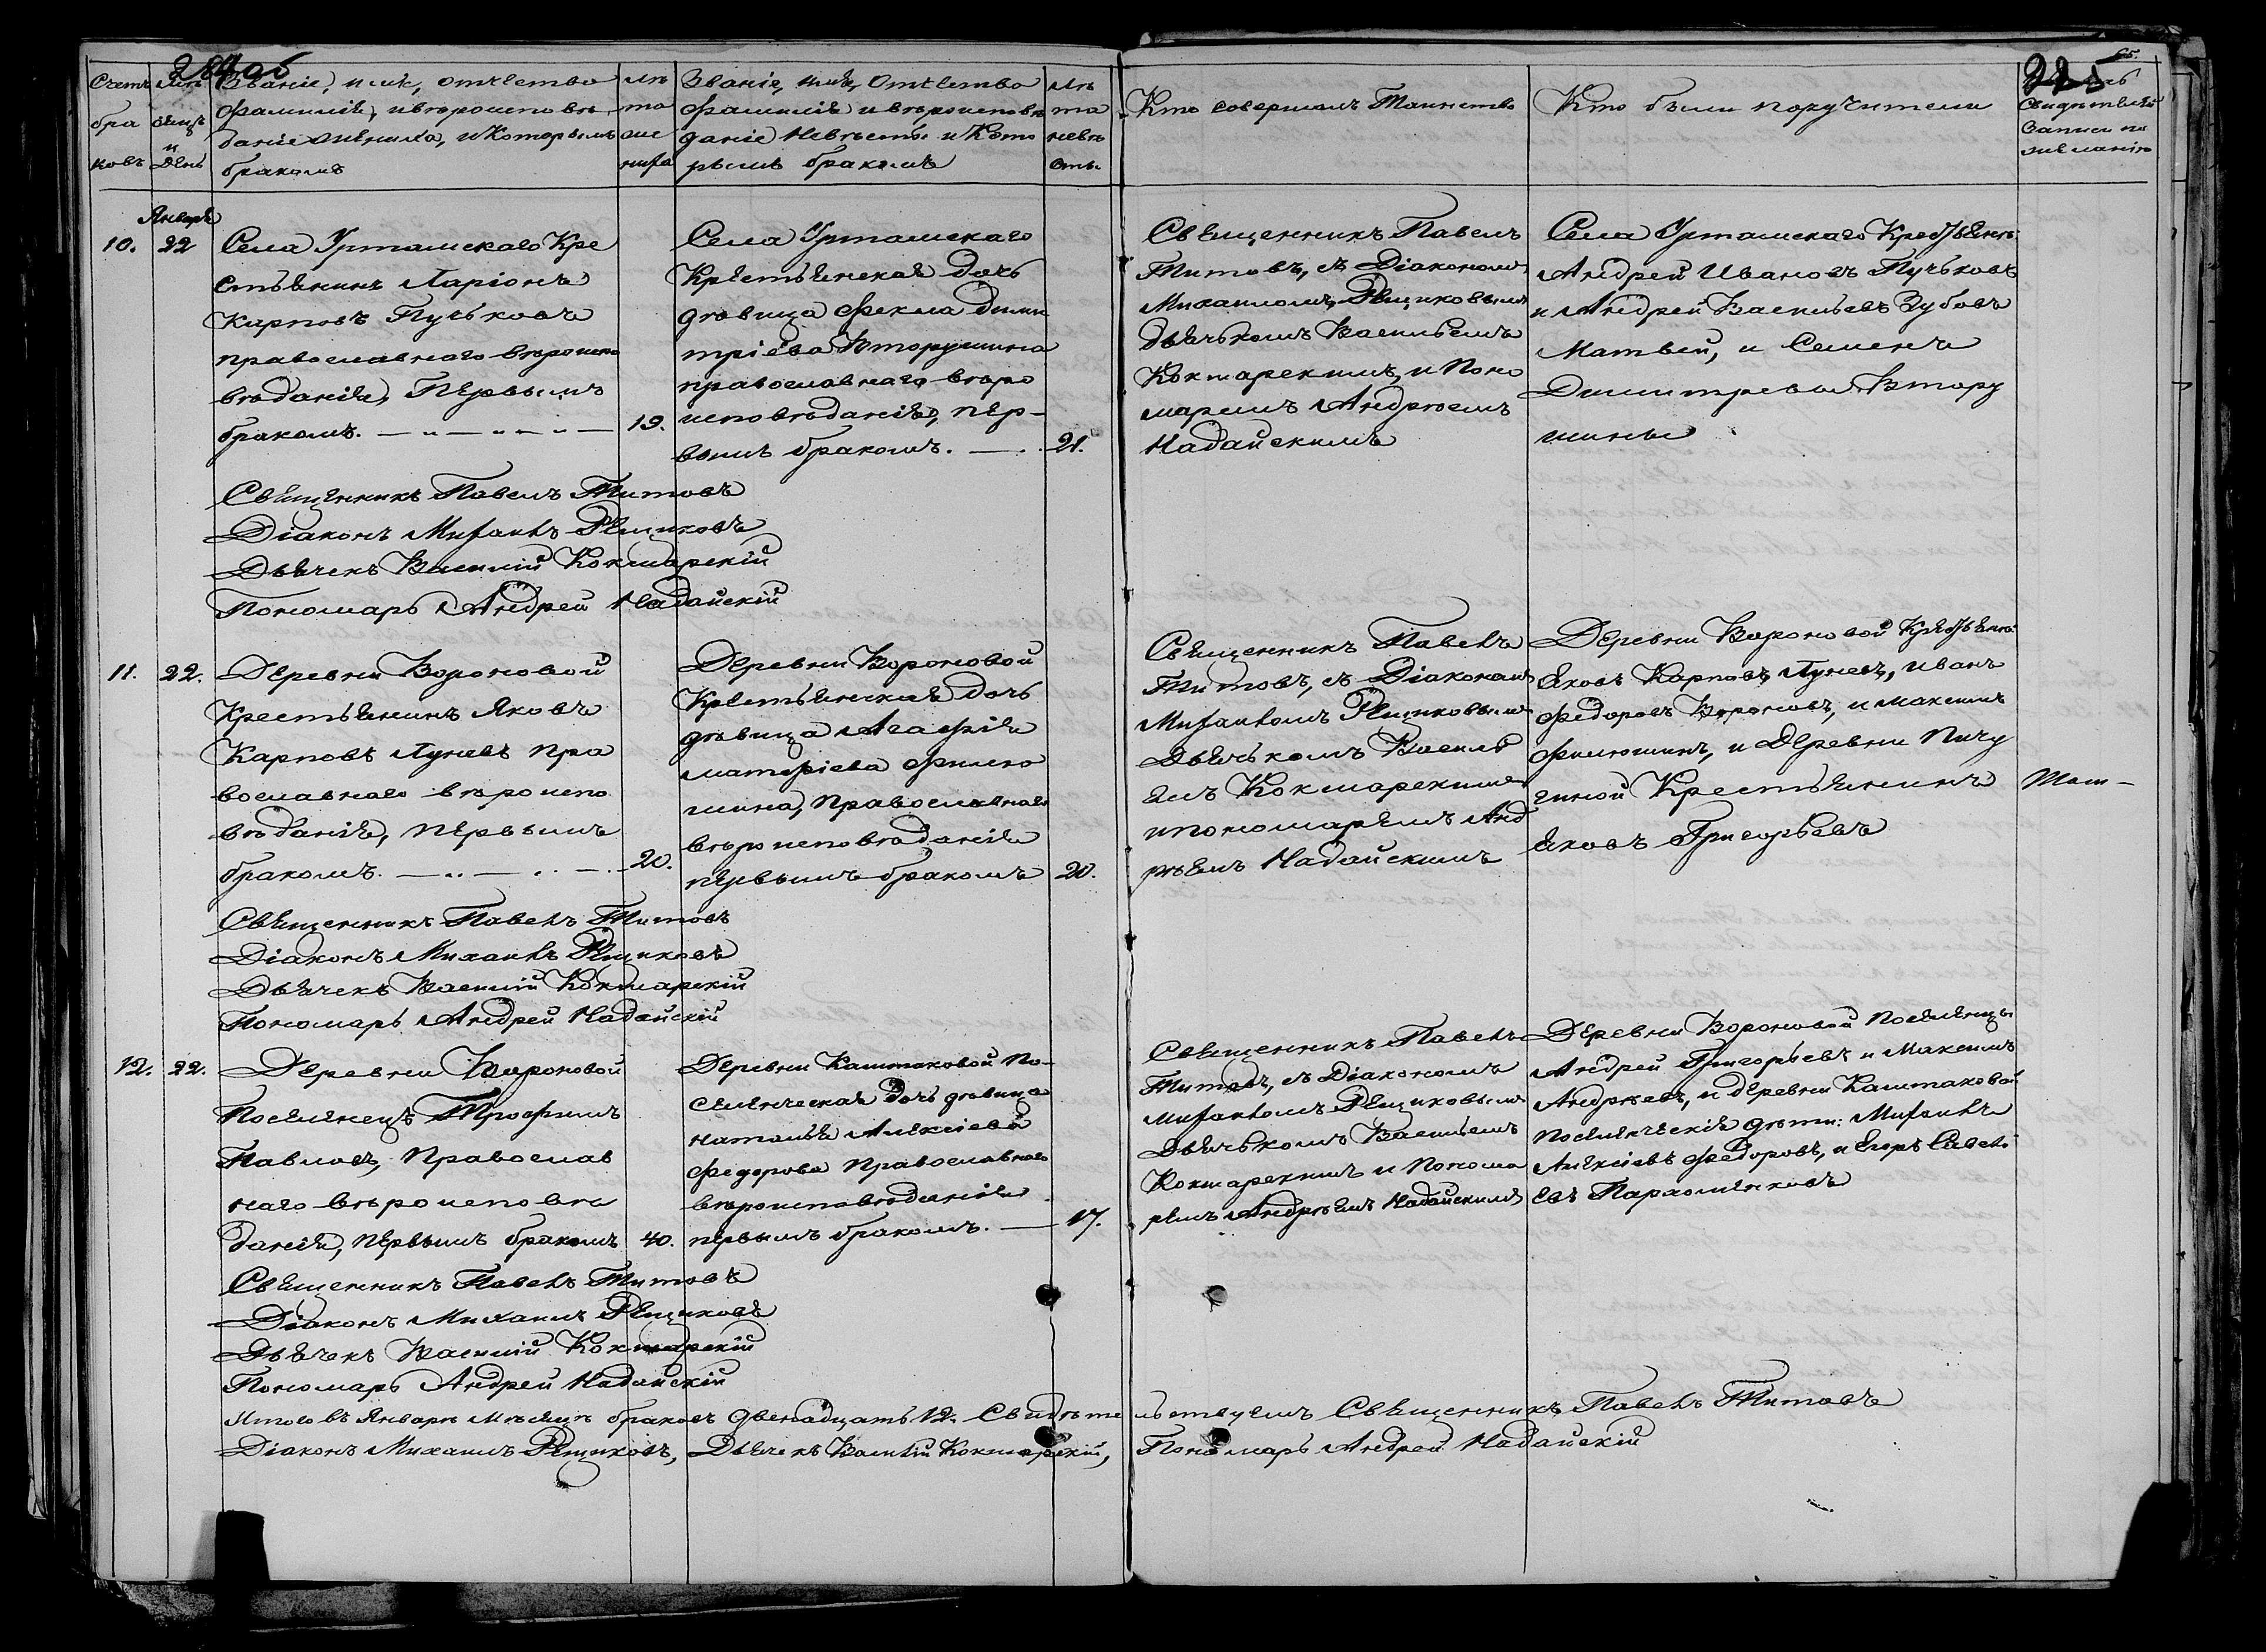 284об
Счетъ
бра
ковъ
Мѣ
сяцъ
и
День
Званіе, имя, отчество
фамилія, и вѣроисповѣ
даніе жениха, и которымъ
бракомъ
Лѣ
та
же
ниха
Званіе, имя, Отчество
фамилія и вѣроисповѣ
даніе Невѣсты и Кото
рымъ бракомъ
Лѣ
та
невѣ
сты
Кто совершалъ Таинство
Кто были поручители
свидѣтелей
записи по
желанію
Января
10. 22
Села Урташскаго Кре
стьянинъ Ларіонъ
Карповъ Пучьковъ
православнаго вѣроиспо
вѣданія, Первымъ
бракомъ. 19.
Села Урташскаго
Крестьянская дочь
дѣвица Фекла Дими
тріева Вторушина
православнаго вѣро
исповѣданія, пер-
вымъ бракомъ. 21.
Священникъ Павелъ
Титовъ, съ Діакономъ
Михаиломъ Рещиковымъ
дьячькомъ Васильемъ
Кокшарскимъ, и Поно
маремъ Андреемъ
Надайскимъ
Села Урташскаго Крестьяне:
Андрей Ивановъ Пучьковъ
и Андрей Васильевъ Зубовъ
Матвей, и Семенъ
Димитревы Втору
шины
Священникъ Павелъ Титовъ
Діаконъ Михаилъ Рещиковъ
Дьячекъ Василій Кокшарскій
Пономарь Андрей Надайскій
11. 22.
Деревни Вороновой
Крестьянинъ Яковъ
Карповъ Луневъ пра
вославнаго вѣроиспо
вѣданія, первымъ
бракомъ. 20.
Деревни Вороновой
Крестьянская дочь
дѣвица Агафія
Матфіева Филю
шина, православнаго
вѣроисповѣданія
первымъ бракомъ 20.
Священникъ Павелъ
Титовъ, съ Діакономъ
Михаиломъ Рещиковымъ
Дьячькомъ Василь
емъ Кокшарскимъ
и пономаремъ Анд
реемъ Надайскимъ
Деревни Вороновой Крестьяне:
Яковъ Карповъ Луневъ, Иванъ
Федоровъ Вороновъ, и Максимъ
Филюшинъ, и Деревни Пичу
гиной Крестьянинъ
Яковъ Григорьевъ
Священникъ Павелъ Титовъ
Діаконъ Михаилъ Рещиковъ
Дьячекъ Василій Кокшарскій
Пономарь Андрей Надайскій
12. 22.
Деревни Вороновой
Поселенецъ Трофимъ
Павловъ, Православ
наго вѣроисповѣ
данія, первымъ бракомъ 40.
Деревни Каштаковой По-
селенческая дочь дѣвица
Наталья Алексіева
Федорова Православнаго
вѣроисповѣданія
первымъ бракомъ. 17.
Священникъ Павелъ
Титовъ, съ Діакономъ
Михаиломъ Рещиковымъ
Дьячькомъ Васильемъ
Кокшарскимъ и Понома
ремъ Андреемъ Надайскимъ
Деревни Вороновой Поселенцы
Андрей Григорьевъ и Максимъ
Андреевъ, и деревни Каштаковой
Поселенческія дѣти: Михаилъ
Алексіевъ Федоровъ, и Егоръ Савель
евъ Пархоменковъ
Священникъ Павелъ Титовъ
Діаконъ Михаилъ Рещиковъ
Дьячекъ Василій Кокшарскій
Пономарь Андрей Надайскій
Итого въ Январѣ Мѣсяцѣ браковъ двенадцать 12. Свидѣтельствуемъ Священникъ Павелъ Титовъ
Діаконъ Михаилъ Рещиковъ, Дьячекъ Василій Кокшарскій, Пономарь Андрей Надайскій